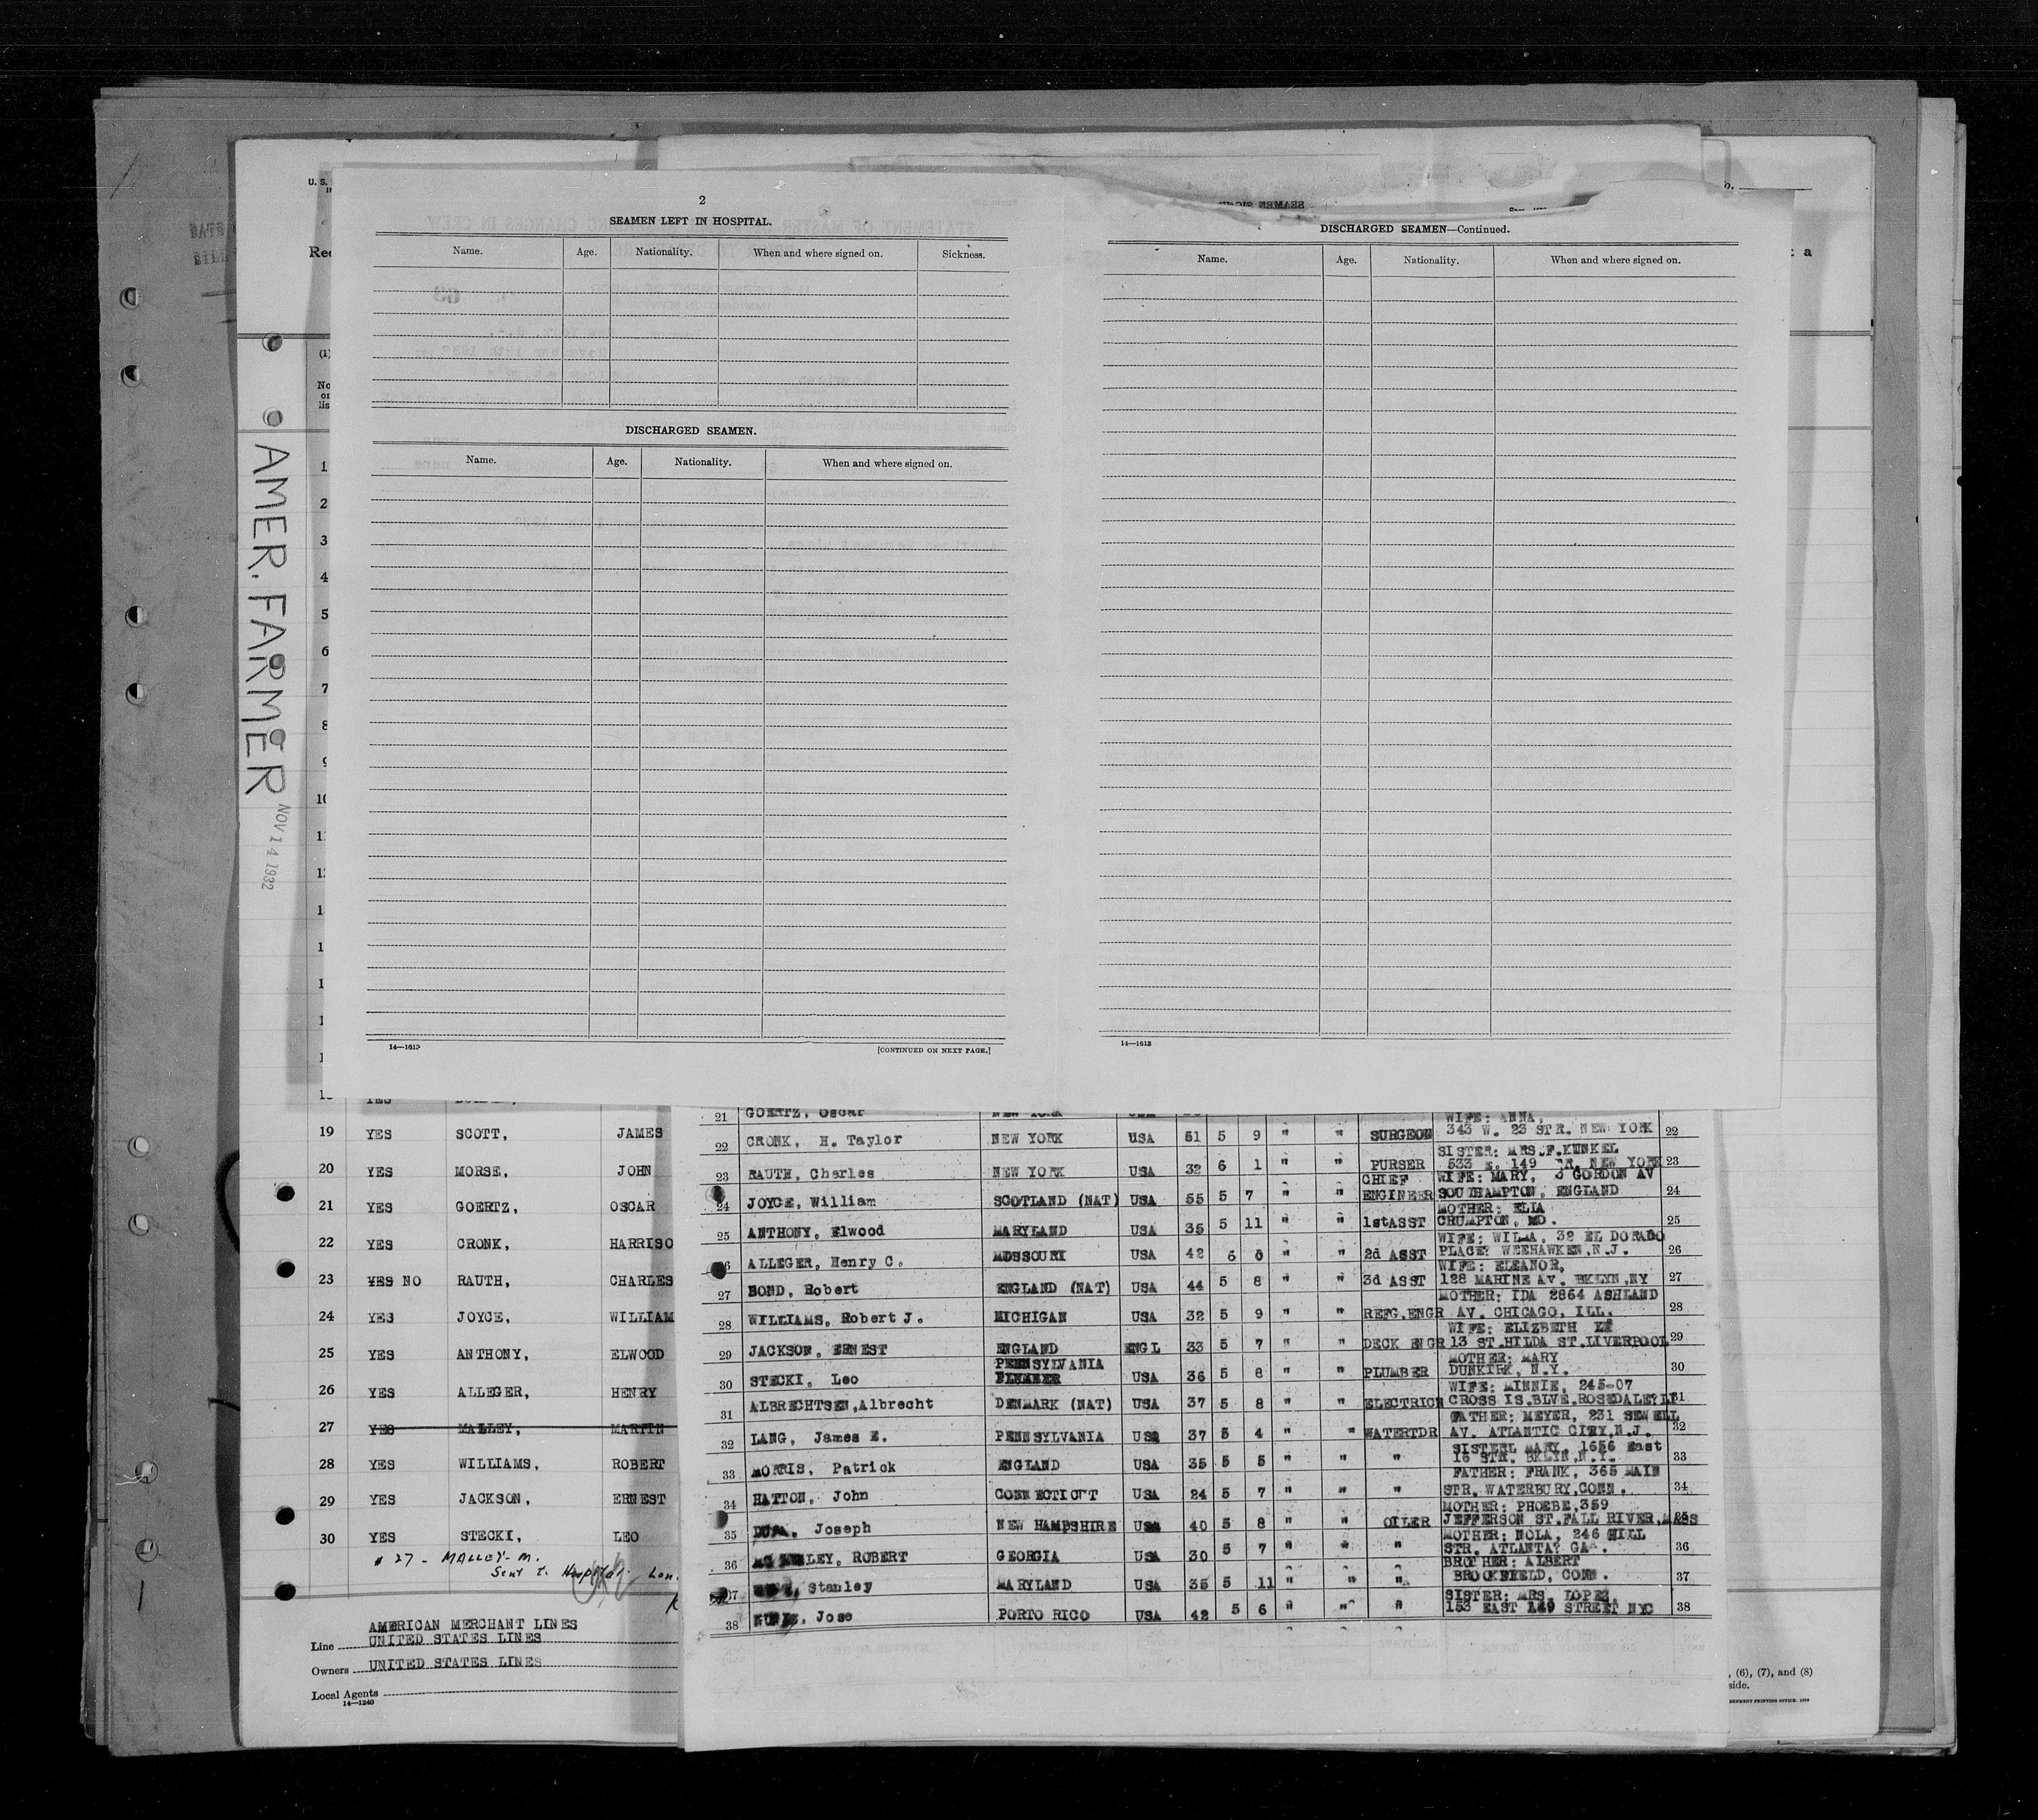 AMER. FARMER
NOV 14 1932
U. S.
Rec
(1)
No
on
lis
1
2
3
4
5
6
7
8
9
10
2
SEAMEN LEFT IN HOSPITAL.
Name. Age. Nationality. When and where signed on. Sickness.
DISCHARGED SEAMEN.
Name. Age. Nationality. When and where signed on.
14—1613
[CONTINUED ON NEXT PAGE.]
DISCHARGED SEAMEN—Continued.
Name. Age. Nationality. When and where signed on.
14—1613
YES
19 YES SCOTT, JAMES
20 YES MORSE, JOHN
21 YES GOERTZ, OSCAR
22 YES CRONK, HARRISO
23 YES NO RAUTH, CHARLES
24 YES JOYCE, WILLIAM
25 YES ANTHONY, ELWOOD
26 YES ALLEGER, HENRY
27 YES MALLEY, MARTIN
28 YES WILLIAMS, ROBERT
29 YES JACKSON, ERNEST
30 YES STECKI, LEO
# 27 - MALLEY - M.
Sent to Hospital Lon.
AMERICAN MERCHANT LINES
Line UNITED STATES LINES
Owners UNITED STATES LINES
Local Agents
14—1240
21 GOERTZ, Oscar NEW YORK
WIFE: ANNA,
22 CRONK, H. Taylor NEW YORK USA 51 5 9 " " SURGEON 343 W. 23 STR. NEW YORK 22
SISTER: MRS.F.KUNKEL
23 RAUTH, Charles NEW YORK USA 32 6 1 " " PURSER 533 E. 149 NEW YORK 23
CHIEF WIFE: MARY, 3 GORDON AV
24 JOYCE, William SCOTLAND (NAT) USA 55 5 7 " " ENGINEER SOUTHAMPTON, ENGLAND 24
MOTHER: ELIA
25 ANTHONY, Elwood MARYLAND USA 35 5 11 " " 1stASST CRUMPTON, MD. 25
WIFE: WILMA, 32 EL DORADO
ALLEGER, Henry C. MOSSOURI USA 42 6 0 " " 2d ASST PLACE: WEEHAWKEN,N.J. 26
WIFE: ELEANOR,
27 BOND, Robert ENGLAND (NAT) USA 44 5 8 " " 3d ASST 128 MARINE AV. BKLYN,NY 27
MOTHER: IDA 2864 ASHLAND
28 WILLIAMS, Robert J. MICHIGAN USA 32 5 9 " " REFG.ENGR AV. CHICAGO, ILL. 28
WIFE: ELIZBETH
29 JACKSON, ERNEST ENGLAND ENGL 33 5 7 " " DECK ENGR 13 ST.HILDA ST.LIVERPOOL 29
PENNSYLVANIA MOTHER: MARY
30 STECKI, Leo USA 36 5 8 " " PLUMBER DUNKIRK, N.Y. 30
WIFE: MINNIE, 245-07
31 ALBRECHTSEN,Albrecht DENMARK (NAT) USA 37 5 8 " " ELECTRICN CROSS IS.BLVE.ROSEDALE 31
FATHER: MEYER, 231 SEWELL
32 LANG, James E. PENNSYLVANIA USA 37 5 4 " " WATERTDR AV. ATLANTIC CITY,N.J. 32
SISTERL MARY, 1656 East
33 MORRIS, Patrick ENGLAND USA 35 5 5 " " " 16 STR. BKLYN,N.Y. 33
FATHER: FRANK, 365 MAIN
34 HATTON, John CONNECTICUT USA 24 5 7 " " " STR. WATERBURY,CONN. 34
MOTHER: PHOEBE,359
35 Joseph NEW HAMPSHIRE USA 40 5 8 " " OILER JEFFERSON ST.FALL RIVER,MASS
MOTHER: NOLA, 246 HILL
36 ROBERT GEORGIA USA 30 5 7 " " " STR. ATLANTA? GA. 36
BROTHER: ALBERT
37 Stanley MARYLAND USA 35 5 11 " " " BROOKFIELD, CONN. 37
SISTER: MRS. LOPEZ
38 Jose PORTO RICO USA 42 5 6 " " " 153 EAST 149 STREET NYC 38
, (6), (7), and (8)
side.